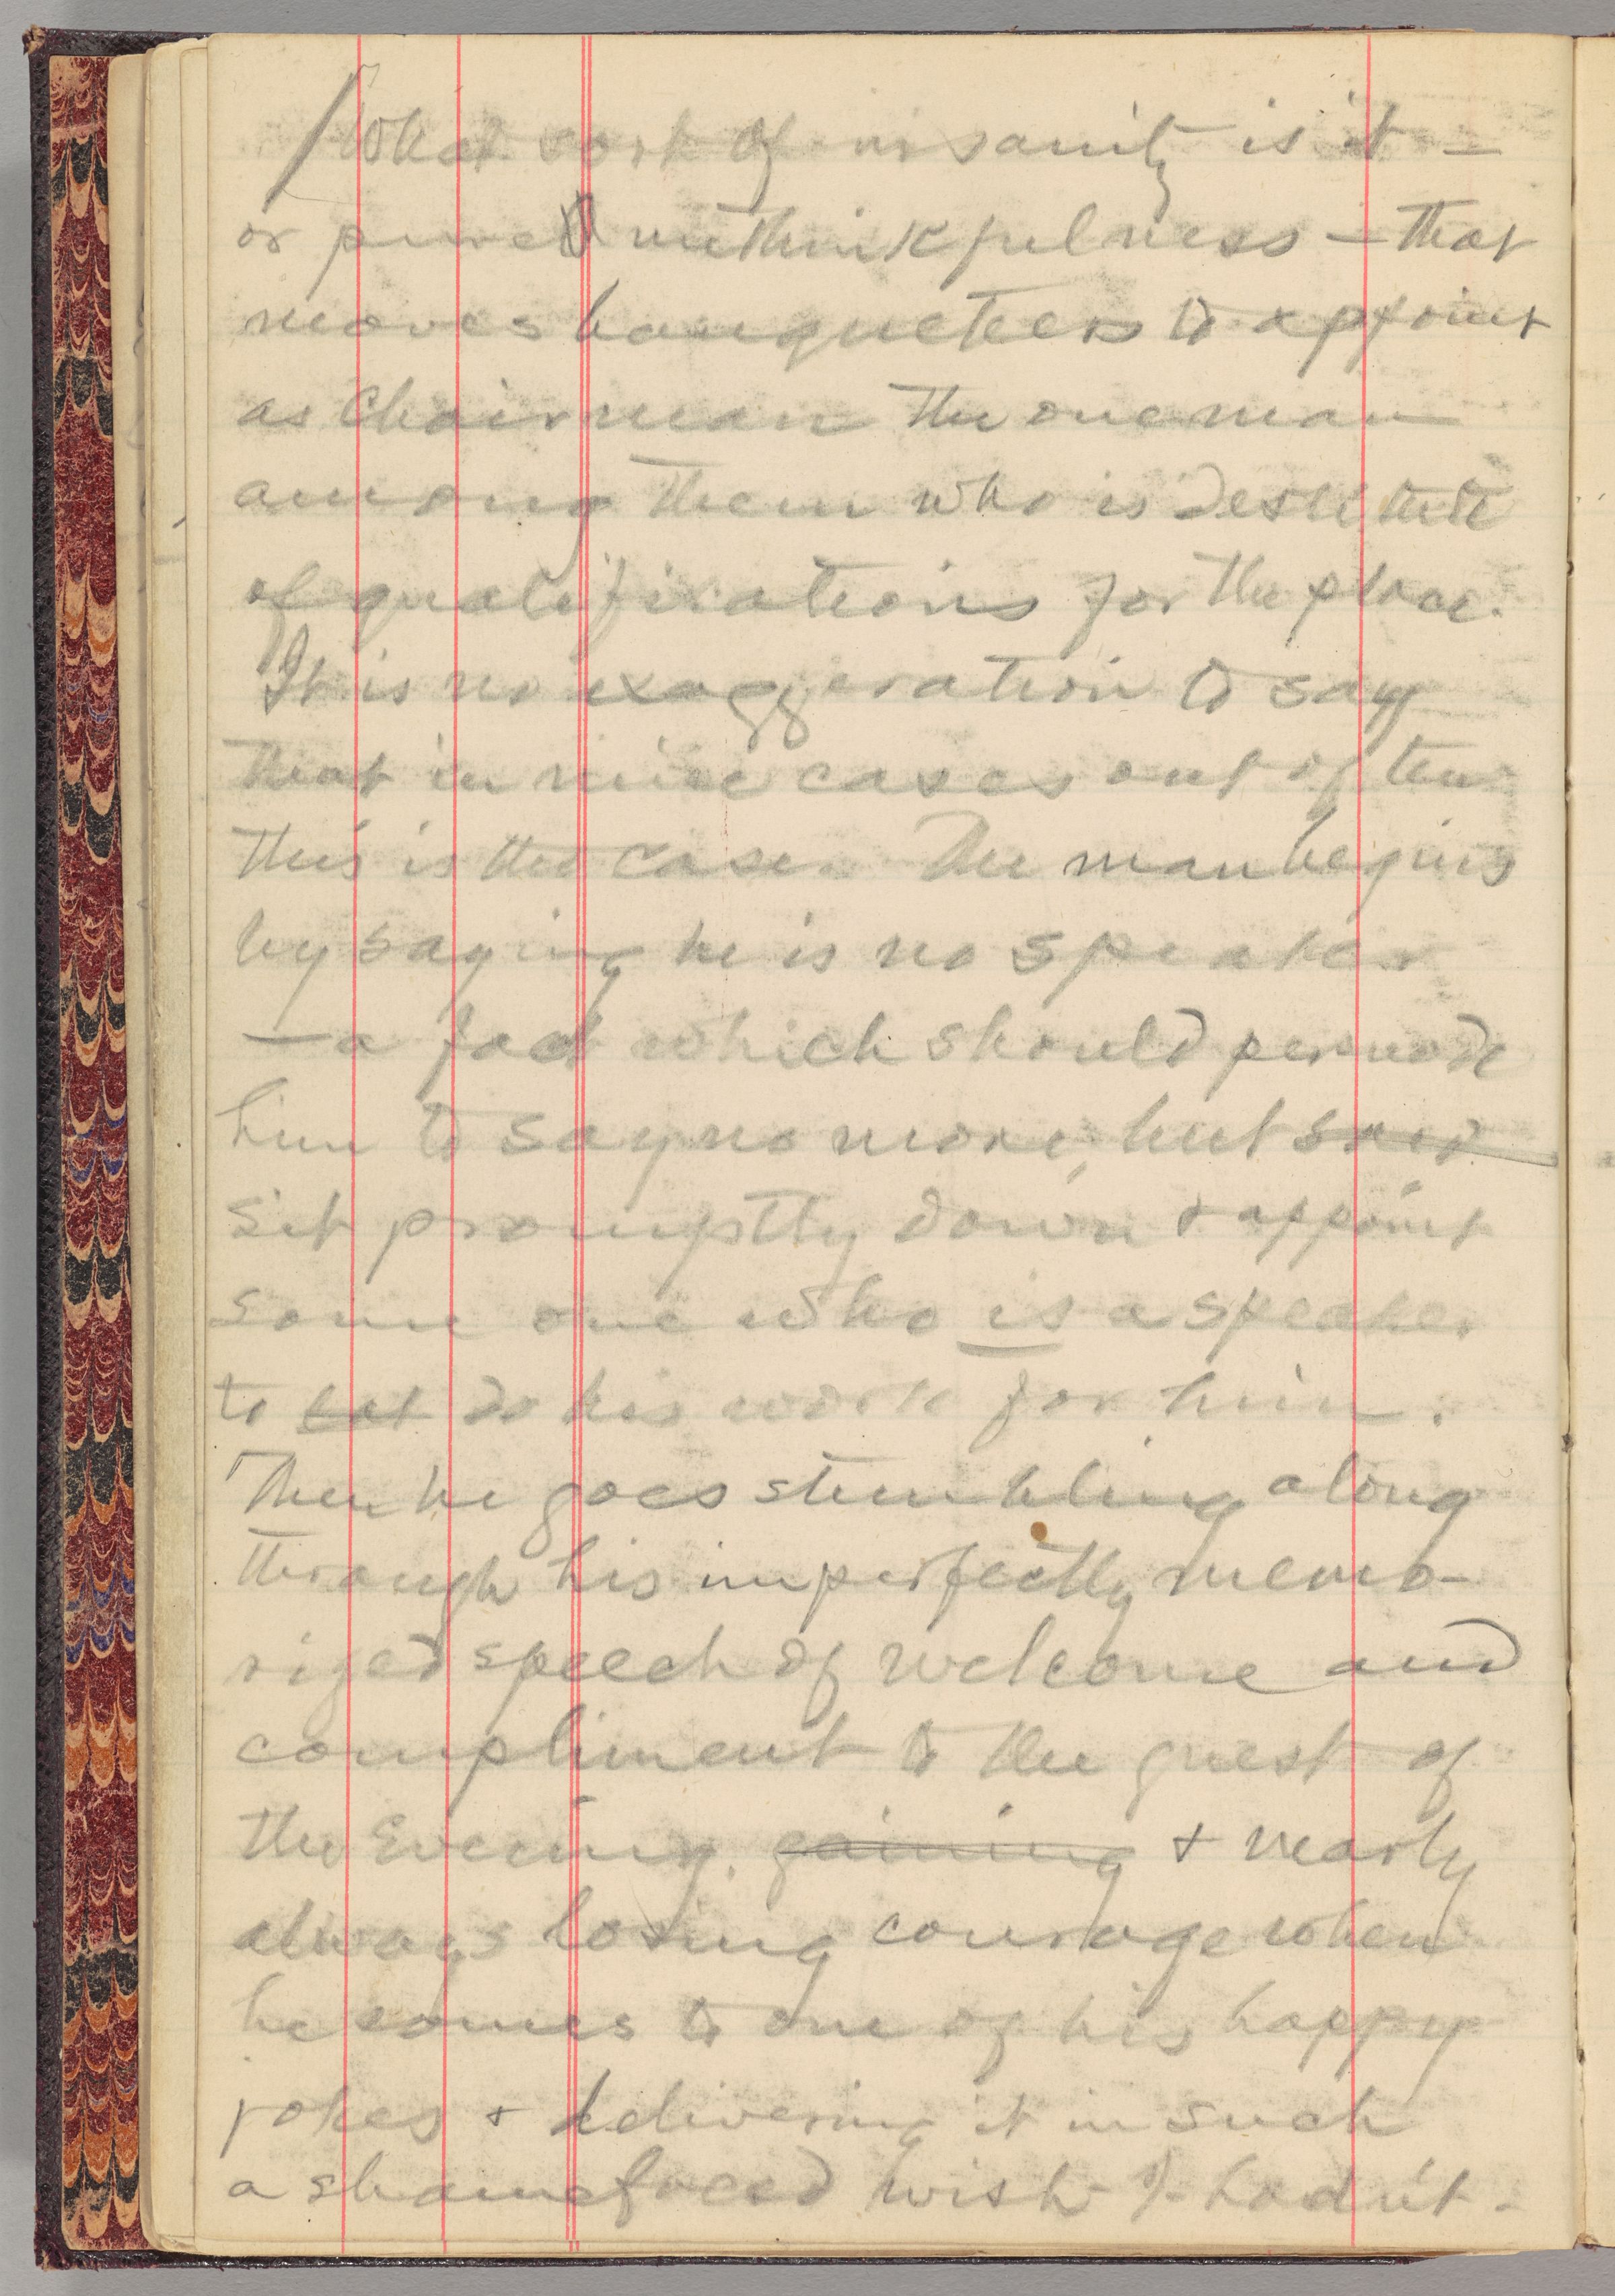 What sort of insanity is it —
or pure unthinkfulness — that
moves banqueteers to appoint
as Chairman the one man
among them who is destitute
of qualifications for the place.
It is no exaggeration to say
that in nine cases out of ten
this is the case. The man begins
by saying he is no speaker
— a fact which should persuade
him to say no more, but
sit promptly down & appoint
some one who is a speaker
to do his work for him.
Then he goes stumbling along
through his imperfectly memo-
rized speech of welcome and
compliment to the guest of
the evening, gaining & nearly
always losing courage when
he comes to one of his happy
jokes & delivering it in such
a shamefaced wish-I-hadn't-